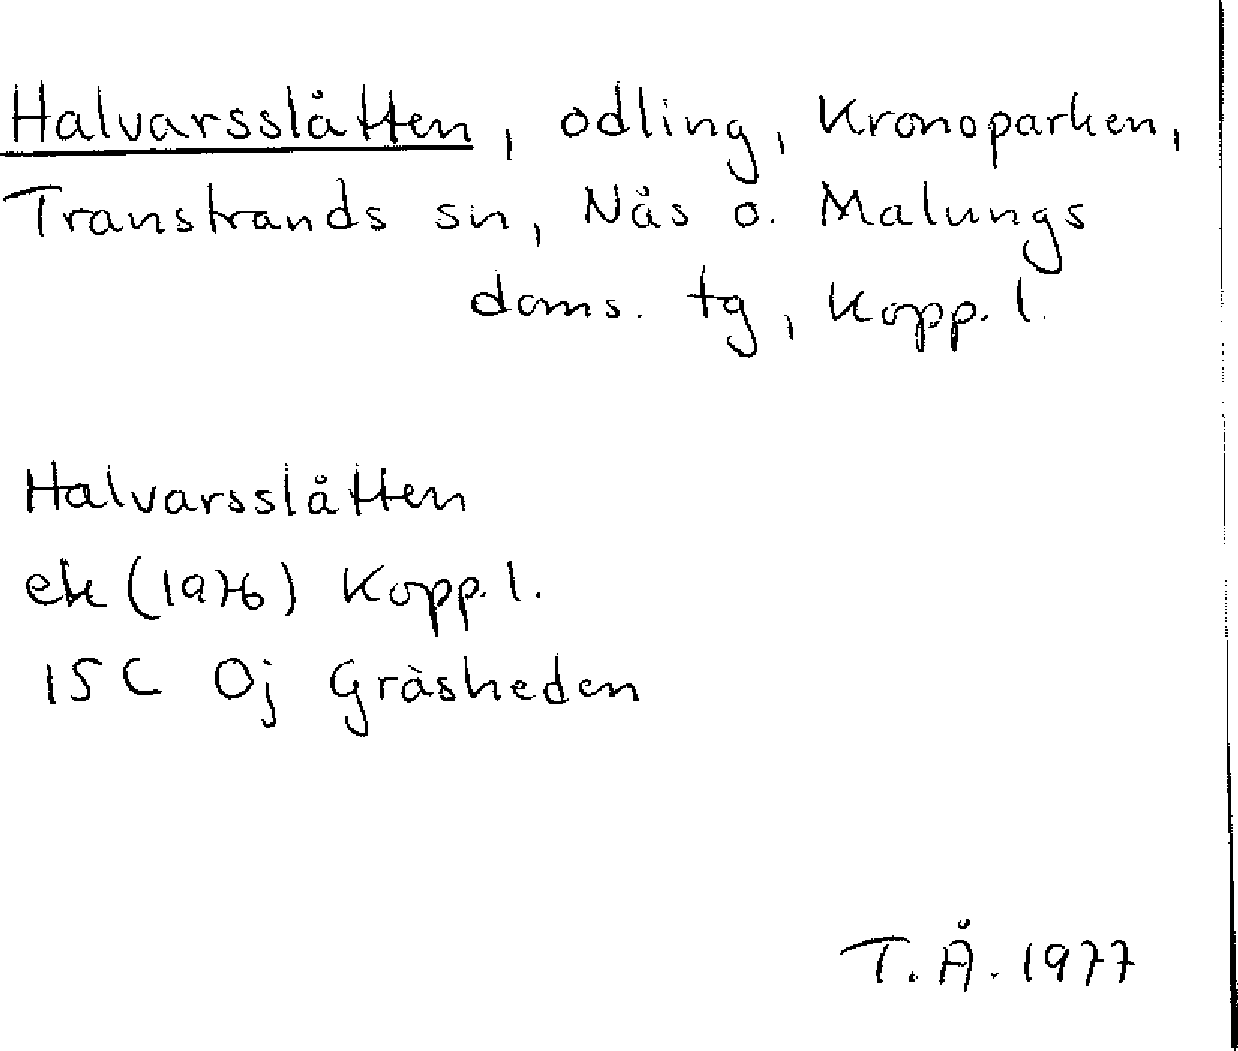 Halvarsslåtten, odling, Kronoparken,
Transtrands sn, Nås o. Malungs
doms. tg, Kopp. l.
Halvarsslåtten
ek (1976) Kopp. l.
15C 0j Gråsheden
T. Å. 1977